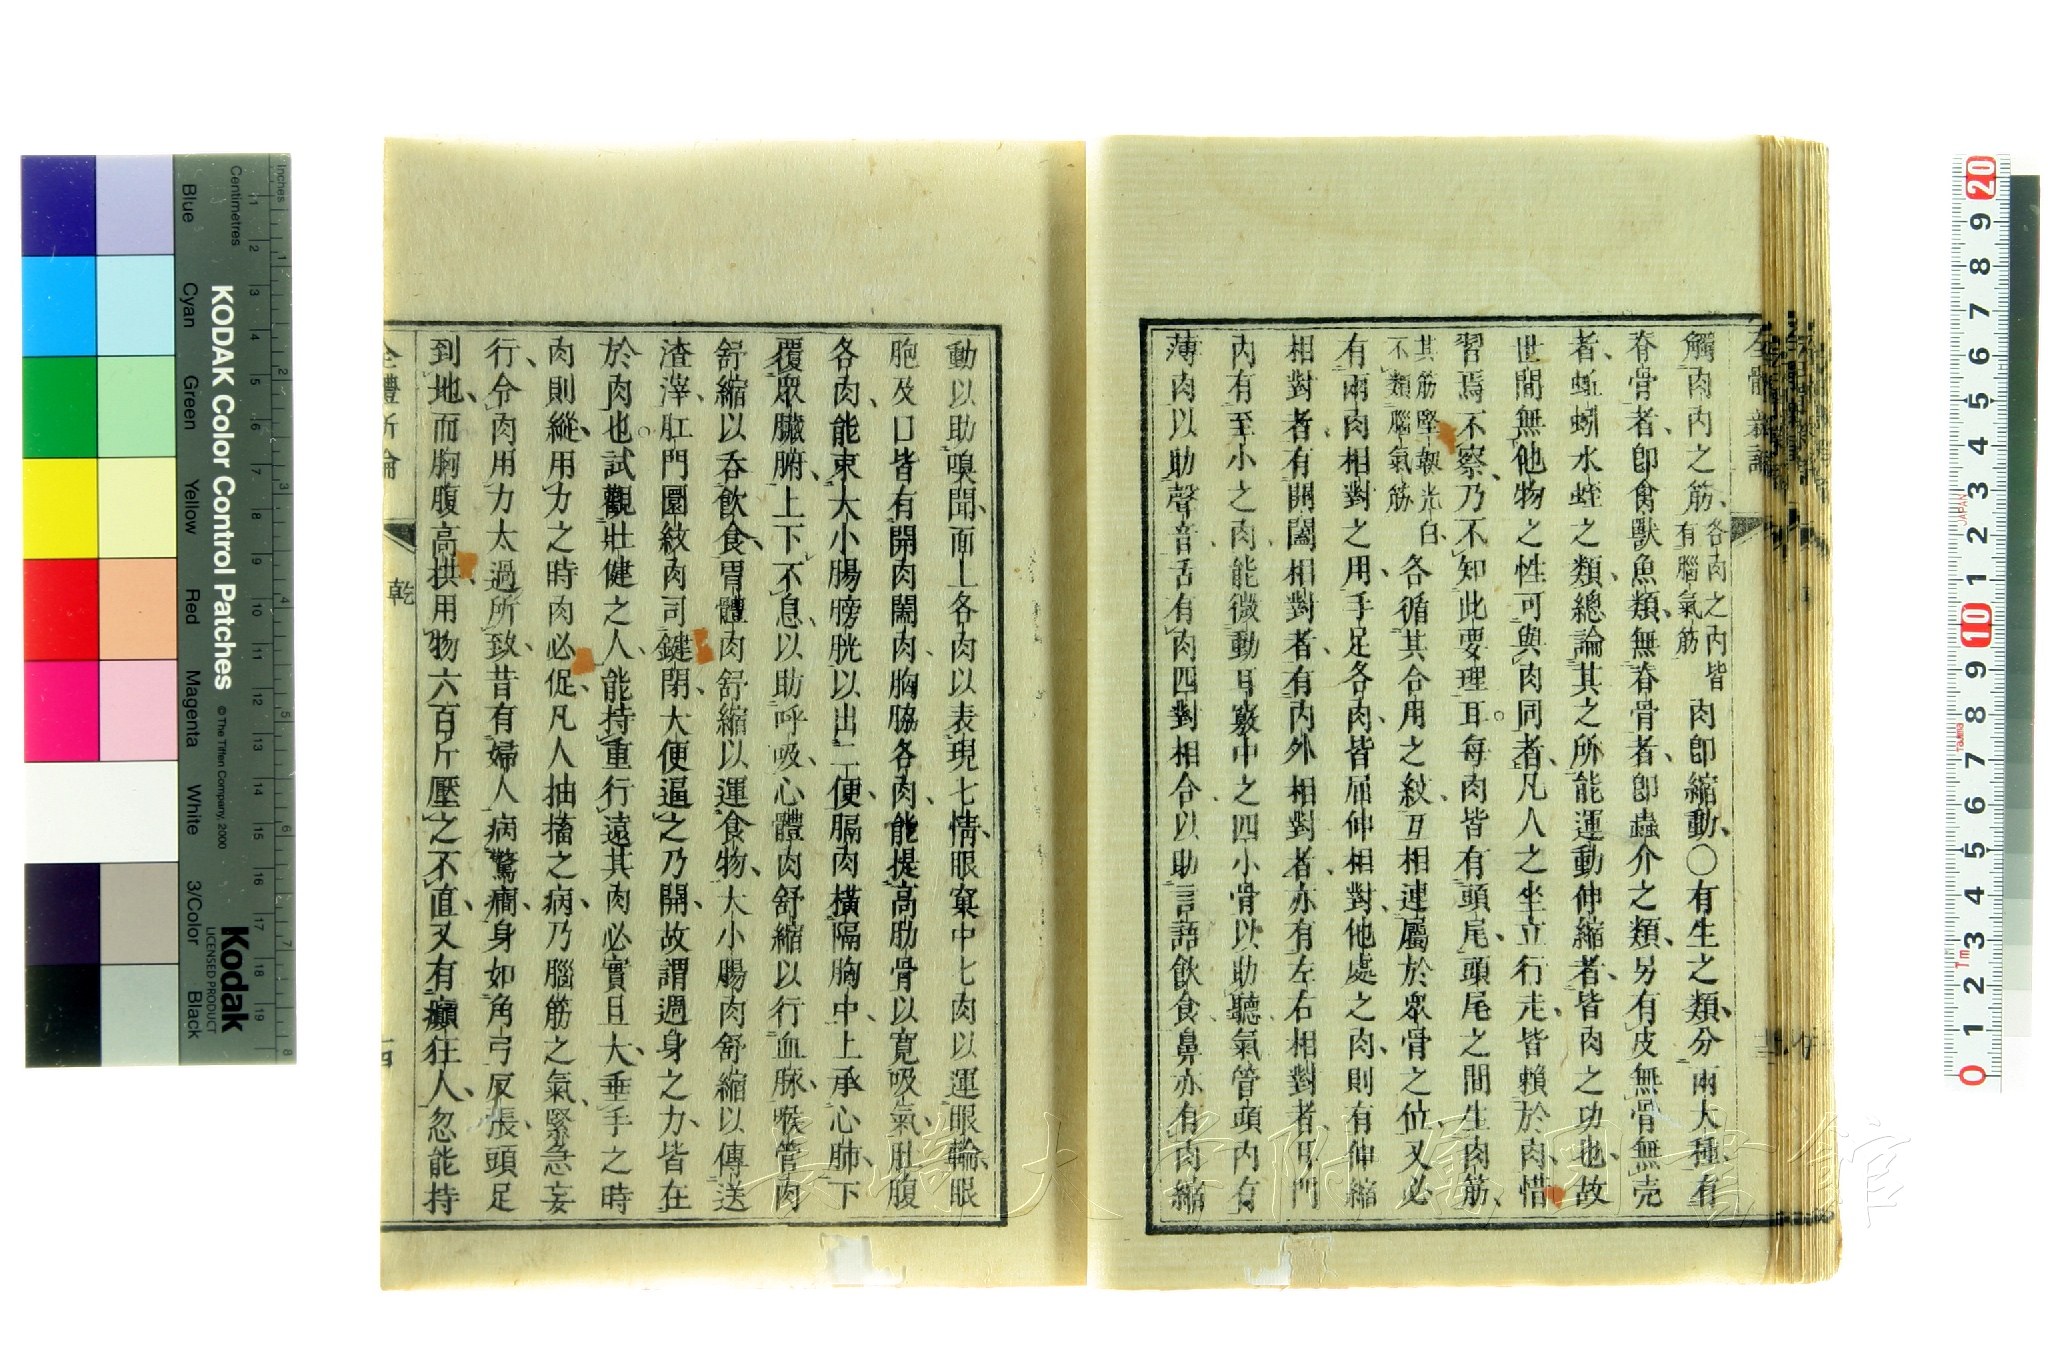 觸肉內之筋、各肉之內皆有腦氣筋肉即縮動、○有生之類、分兩大種、有
脊骨者、即禽獸魚類、無脊骨者、即蟲介之類、另有皮無骨無壳
者、蚯蚓水蛭之類、總論其之所能運動伸縮者、皆肉之功也、故
世間無他物之性可與肉同者、凡人之坐立行走、皆賴於肉、惜
習焉不察、乃不知此要理耳。每肉皆有頭尾、頭尾之間生肉筋、
其筋堅韌光白、不類腦氣筋各循其合用之紋、互相連屬於眾骨之位、又必
有兩肉相對之用、手足各肉、皆屈伸相對、他處之肉、則有伸縮
相對者、有開闔相對者、有內外相對者、亦有左右相對者、耳門
內有至小之肉、能微動耳竅中之四小骨、以助聽、氣管頭內有
薄肉、以助聲音、舌有肉四對相合、以助言語飲食、鼻亦有肉縮
動、以助嗅聞、面上各肉、以表現七情、眼窠中七肉、以運眼輪、眼
胞及口、皆有開肉闔肉、胸脇各肉、能提高肋骨、以寬吸氣、肚腹
各肉、能束大小腸膀胱、以出二便、膈肉橫隔胸中、上承心肺、下
覆眾臟腑、上下不息、以助呼吸、心體肉舒縮、以行血脉、喉管肉
舒縮、以吞飲食、胃體肉舒縮、以運食物、大小腸肉舒縮、以傳送
渣滓、肛門圈紋肉司鍵閉、大便逼之乃開、故謂週身之力、皆在
於肉也。試觀壯健之人、能持重行遠、其肉必實且大、垂手之時
肉則縱、用力之時、肉必促、凡人抽搐之病、乃腦筋之氣、緊急妄
行、令肉用力太過所致、昔有婦人、病驚癇、身如角弓反張、頭足
到地、而胸腹高拱、用物六百斤壓之不直、又有癲狂人、忽能持
乾